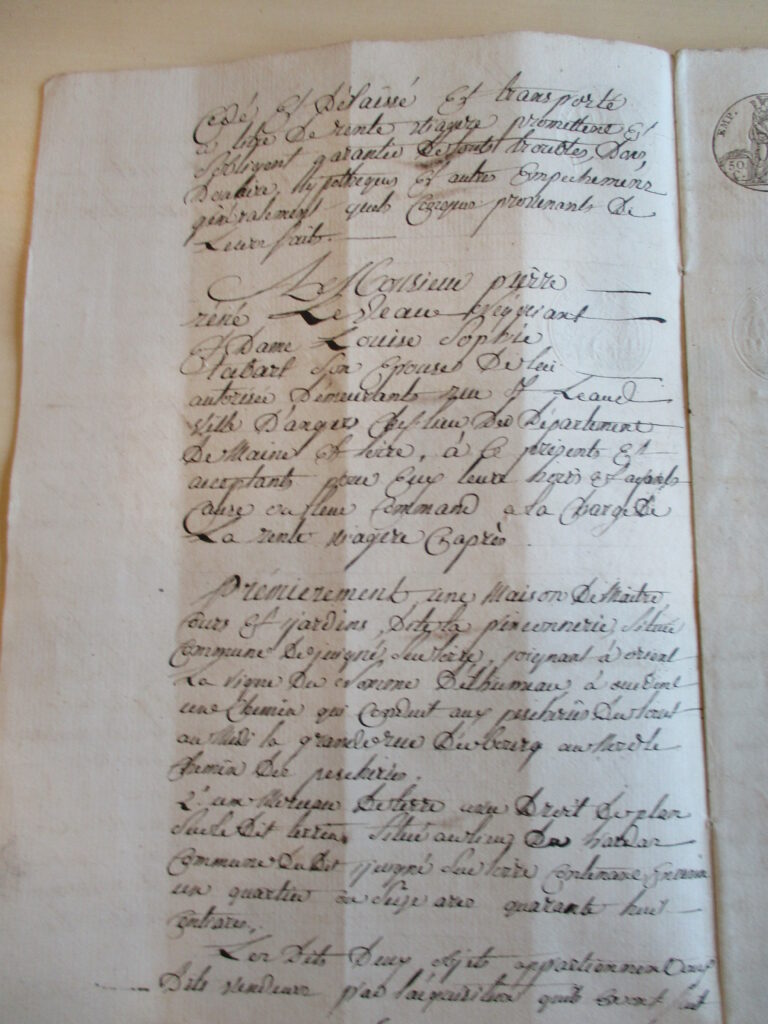 Cedé Et Délaissé Et transporté
a titre De rente viagere promettent Et
obligent garantie De touts troubles, Dons,
Douaire, hypotheques Et autres Empechemens
généralement quels Conques provenants De
Leurs faits.
A Monsieur pierre
réné LeVeau négotiant
Et Dame Louise Sophie
son Epouse De lui
autorisée Demeurants rue St Leaud
Ville D'angers Chef lieu Du Département
De Maine Et loire, à Ce présents Et
acceptants pour Eux leurs hoirs Et ayants
Cause ou leur Command a la Charge De
La rente viagere Ciaprès
prémierement une Maison De Maître
Cours Et jardins, Dite la pinconnerie, Située
Commune De juigné Sur loire, joignant à orient
La vigne Du Délhumeau à occident
une Chemin qui Conduit aux pescheries Du tout
au Midi la grande rue Du bourg au Nord le
Chemin Des pescheries.
2.° un Morceau De terre avec Droit De plan
Sur le Dit terrein Situé au lieu Du hardas
Commune Du Dit juigné Sur loire Contenant Environ
un quartier ou Seize ares quarante huit
Centiares.
Les Dits Deux objets appartiennent aux
Dits vendeurs par l'acquisition quils En ont fait
EMP.
50
C.